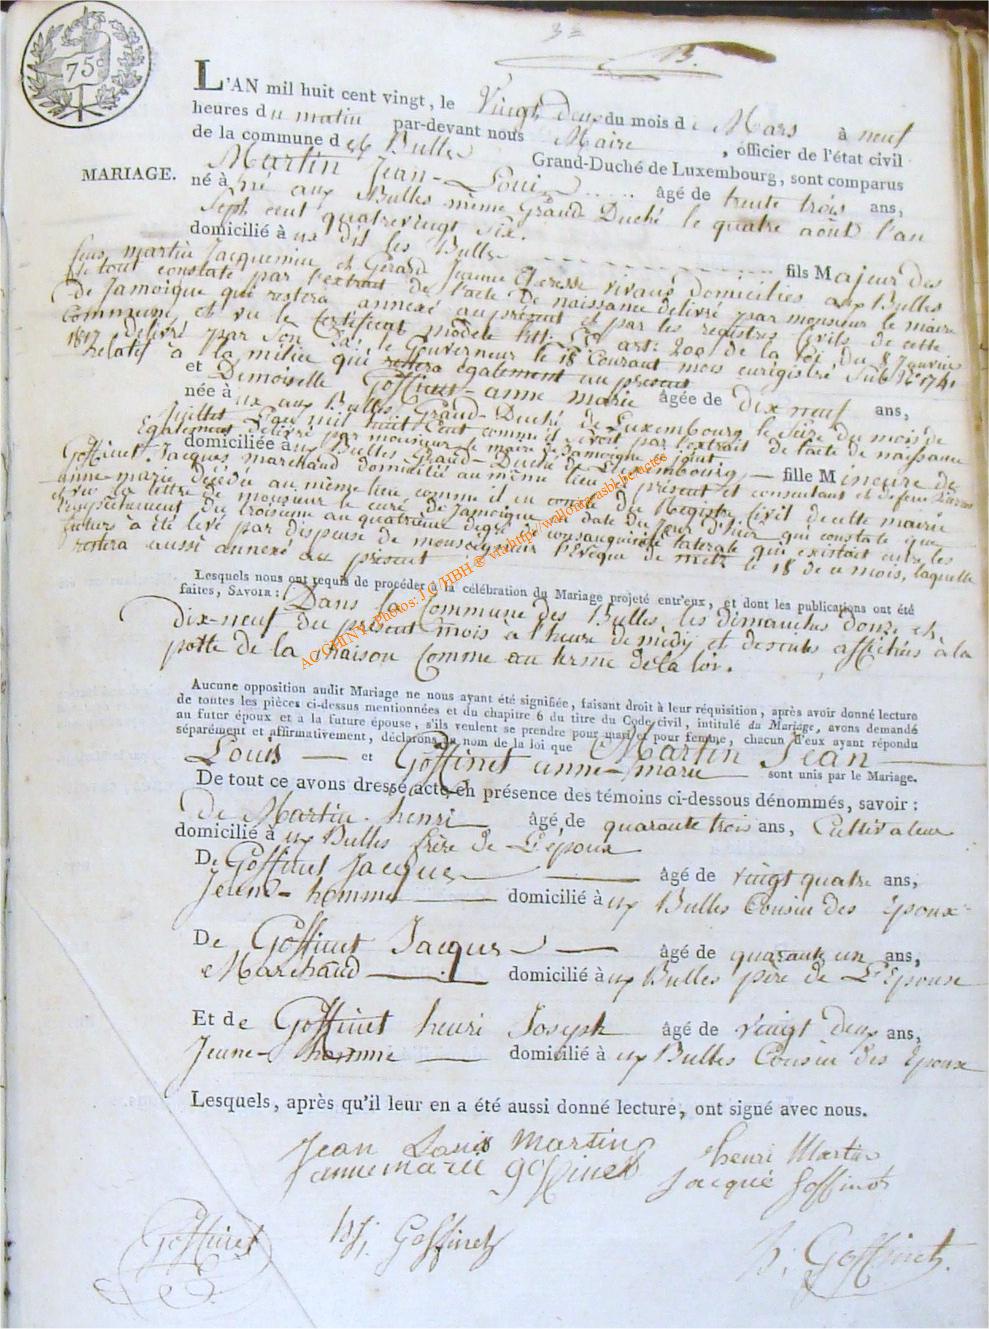 75c
3e
13.
L'AN mil huit cent vingt, le Vingt Deux du mois de Mars à neuf
heures du matin par-devant nous Maire, officier de l'état civil
de la commune des Bulles Grand-Duché de Luxembourg, sont comparus
MARIAGE.
Martin Jean-Louis âgé de trente trois ans,
né à né aux Bulles même Grand Duché le quatre août l'an
Sept cent quatrevingt Six.
domicilié à ux dit les Bulles fils Majeur des
feus martin Jacquemin et Gerard Jeanne vivans domiciliés aux Bulles
le tout constaté par l'extrait de l'acte de naissance délivré par monsieur le maire
de Jamoigne qui restera annexé au présent et par les registres Civils de cette
Commune, et vu le Certificat modèle litt: art: 200 de la loi du 8 Janvier
1817 délivré par Son le Gouverneur le 18 Courant mois enrégistré Sub No 1741
relatif à la milice qui restera également au présent
et Demoiselle Goffinet anne marie âgée de dix neuf ans,
née à ux aux Bulles Grand-Duché de Luxembourg le Seize du mois de
Juillet l'an mil huit Cent comme il conste par l'extrait de l'acte de naissance
Egalement délivré par monsieur le maire de Jamoigne ci joint
domiciliée à ux Bulles Grand-Duché de Luxembourg, fille Mineure de
Goffinet Jacques marchand domicilié au même lieu, ci présent et consentant et de feue
anne-marie décédée au même lieu, comme il en conste du Registre Civil de cette mairie
et vu la lettre de monsieur le curé de Jamoigne en date du Jour d'hier qui constate que
l'empêchement du troisieme au quatrieme degré de consanguinité laterale qui existait entre les
futurs a été levé par dispense de monseigneur l'évêque de metz le 18 de ce mois, laquelle
restera aussi annexé au présent
Lesquels nous ont requis de procéder à la célébration du Mariage projeté entr'eux, et dont les publications ont été
faites, SAVOIR: Dans la Commune des Bulles, les dimanches douze et
Dix-neuf du présent mois à l'heure de midy et desuite affichées à la
porte de la maison Comme au terme de la loi.
Aucune opposition audit Mariage ne nous ayant été signifiée, faisant droit à leur réquisition, après avoir donné lecture
de toutes les pièces ci-dessus mentionnées et du chapitre 6 du titre du Code civil, intitulé du Mariage, avons demandé
au futur époux et à la future épouse, s'ils veulent se prendre pour mari et pour femme, chacun d'eux ayant répondu
séparément et affirmativement, déclarons au nom de la loi que Martin Jean
Louis et Goffinet anne-marie sont unis par le Mariage.
De tout ce avons dressé acte en présence des témoins ci-dessous dénommés, savoir:
De Martin henri âgé de quarante trois ans, Cultivateur
domicilié à ux Bulles frère de L'époux
De Goffinet Jacques âgé de vingt quatre ans,
Jeune-homme domicilié à ux Bulles Cousin des Epoux
De Goffinet Jacques âgé de quarante un ans,
Marchand domicilié à ux Bulles père de L'Epouse
Et de Goffinet henri Joseph âgé de vingt deux ans,
Jeune-homme domicilié à ux Bulles Cousin des Epoux
Lesquels, après qu'il leur en a été aussi donné lecture, ont signé avec nous.
Jean Louis Martin
henri Martin
anne marie goffinet
Jacque Goffinet
Goffinet
h.j. Goffinet
Goffinet.
AC CHINY - Photos: J.C. HBH @ via http://wallonia.asbl.be/actes